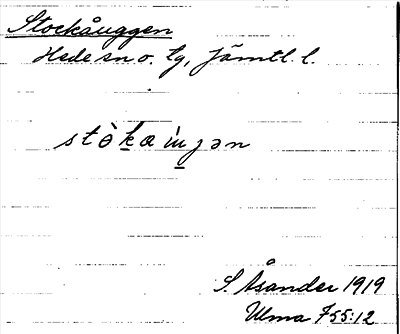 Stockåuggen
Hede sn o. tg, Jämtl. l.
stòkæiŋjən
S. Åsander 1919
Ulma 755:12